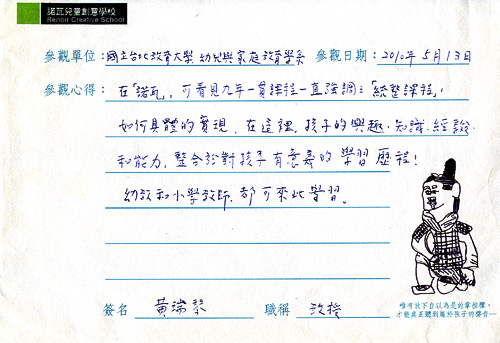 諾瓦兒童創意學校
Renoir Creative School
參觀單位：國立台北教育大學 幼兒與家庭教育學系 參觀日期：2010年5月13日
參觀心得：在「諾瓦」，可看見九年一貫課程一直強調之「統整課程」，
如何具體的實現，在這裡，孩子的興趣、知識、經驗
和能力，整合於對孩子有意義的學習歷程！
幼教和小學教師，都可來此學習。
唯有放下自以為是的掌控權，
才能真正聽到屬於孩子的聲音—
簽名 黃瑞琴 職稱 教授